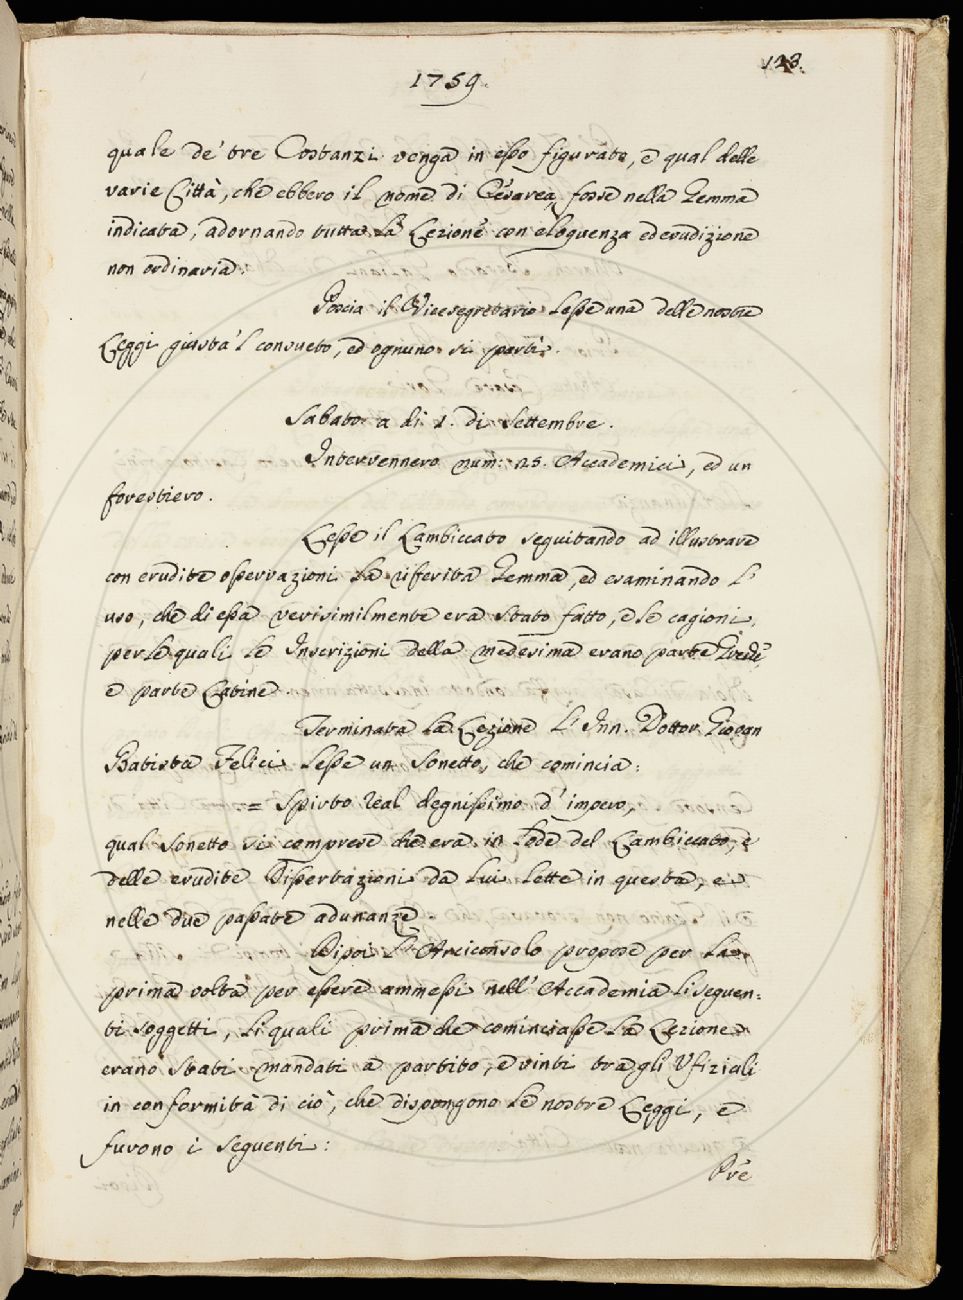 123.
1759.
quale de' tre Costanzi venga in esso figurato, e qual delle
varie Città, che ebbero il nome di Cesarea, fosse nella Gemma
indicata, adornando tutta la Lezione con eloquenza ed erudizione
non ordinaria.
Poscia il Vicesegretario lesse una delle nostre
Leggi giusta 'l consueto, ed ognuno si partì.
Sabato a di 1. di Settembre.
Intervennero num: 25. Accademici, ed un
forestiero.
Lesse il Lambiccato seguitando ad illustrare
con erudite osservazioni la riferita Gemma, ed esaminando l'
uso, che di essa verisimilmente era stato fatto, e le cagioni,
per le quali le Inscrizioni della medesima erano parte Greche,
e parte Latine.
Terminata la Lezione l' Inn. Dottor Giovan
Batista Felici lesse un Sonetto, che comincia:
= Spirto real degnissimo d' impero,
qual Sonetto si comprese che era in lode del Lambiccato, e
delle erudite Dissertazioni da lui lette in questa, e
nelle due passate adunanze.
Dipoi l' Arciconsolo propose per la
prima volta per essere ammessi nell' Accademia li seguen:
ti soggetti, li quali prima che cominciasse la Lezione
erano stati mandati a partito, e vinti tra gli Ufiziali
in conformità di ciò, che dispongono le nostre Leggi, e
furono i seguenti:
Pre